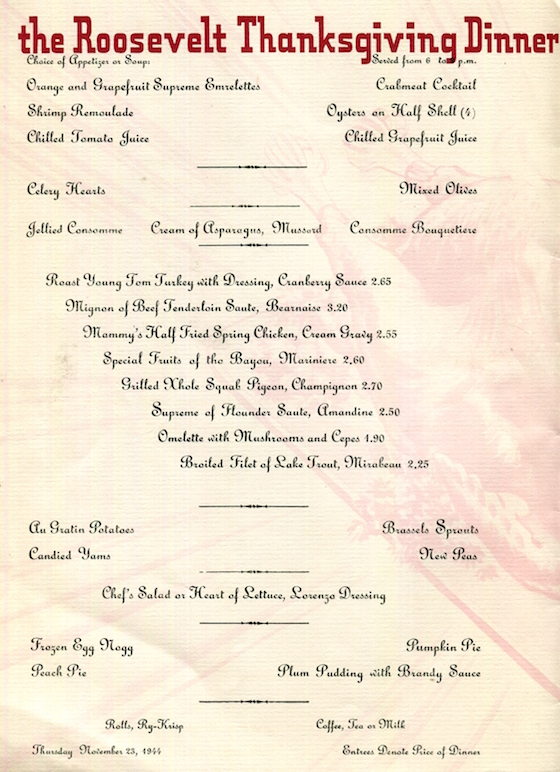 the Roosevelt Thanksgiving Dinner
Choice of Appetizer or Soup: Served from 6 to p.m.
Orange and Grapefruit Supreme Emrelettes Crabmeat Cocktail
Shrimp Remoulade Oysters on Half Shell (4)
Chilled Tomato Juice Chilled Grapefruit Juice
Celery Hearts Mixed Olives
Jellied Consomme Cream of Asparagus, Mussord Consomme Bouquetiere
Roast Young Tom Turkey with Dressing, Cranberry Sauce 2.65
Mignon of Beef Tenderloin Saute, Bearnaise 3.20
Mammy's Half Fried Spring Chicken, Cream Gravy 2.55
Special Fruits of the Bayou, Mariniere 2.60
Grilled Whole Squab Pigeon, Champignon 2.70
Supreme of Flounder Saute, Amandine 2.50
Omelette with Mushrooms and Cepes 1.90
Broiled Filet of Lake Trout, Mirabeau 2.25
Au Gratin Potatoes Brussels Sprouts
Candied Yams New Peas
Chef's Salad or Heart of Lettuce, Lorenzo Dressing
Frozen Egg Nogg Pumpkin Pie
Peach Pie Plum Pudding with Brandy Sauce
Rolls, Ry-Krisp Coffee, Tea or Milk
Thursday November 23, 1944 Entrees Denote Price of Dinner